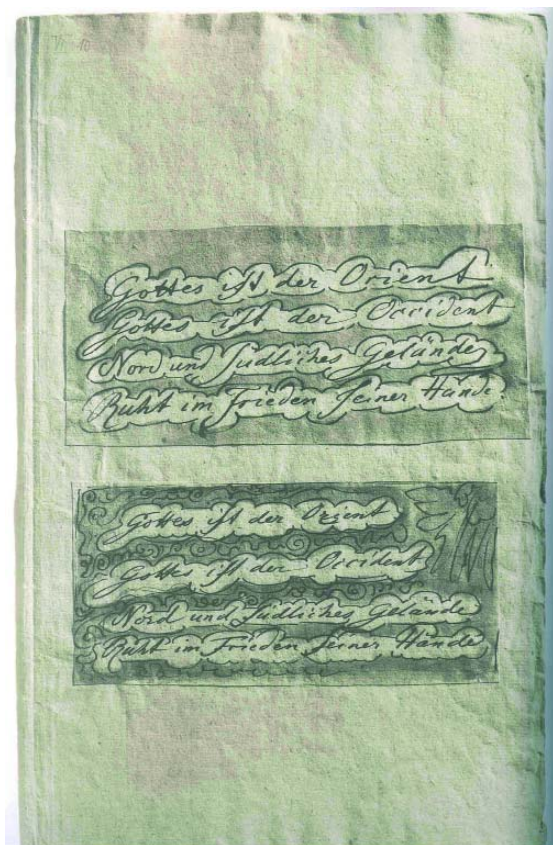 Gottes ist der Orient.
Gottes ist der Occident
Nord und südliches Gelände
Ruht im Frieden seiner Hände.
Gottes ist der Orient
Gottes ist der Occident
Nord und südliches Gelände
Ruht im Frieden seiner Hände